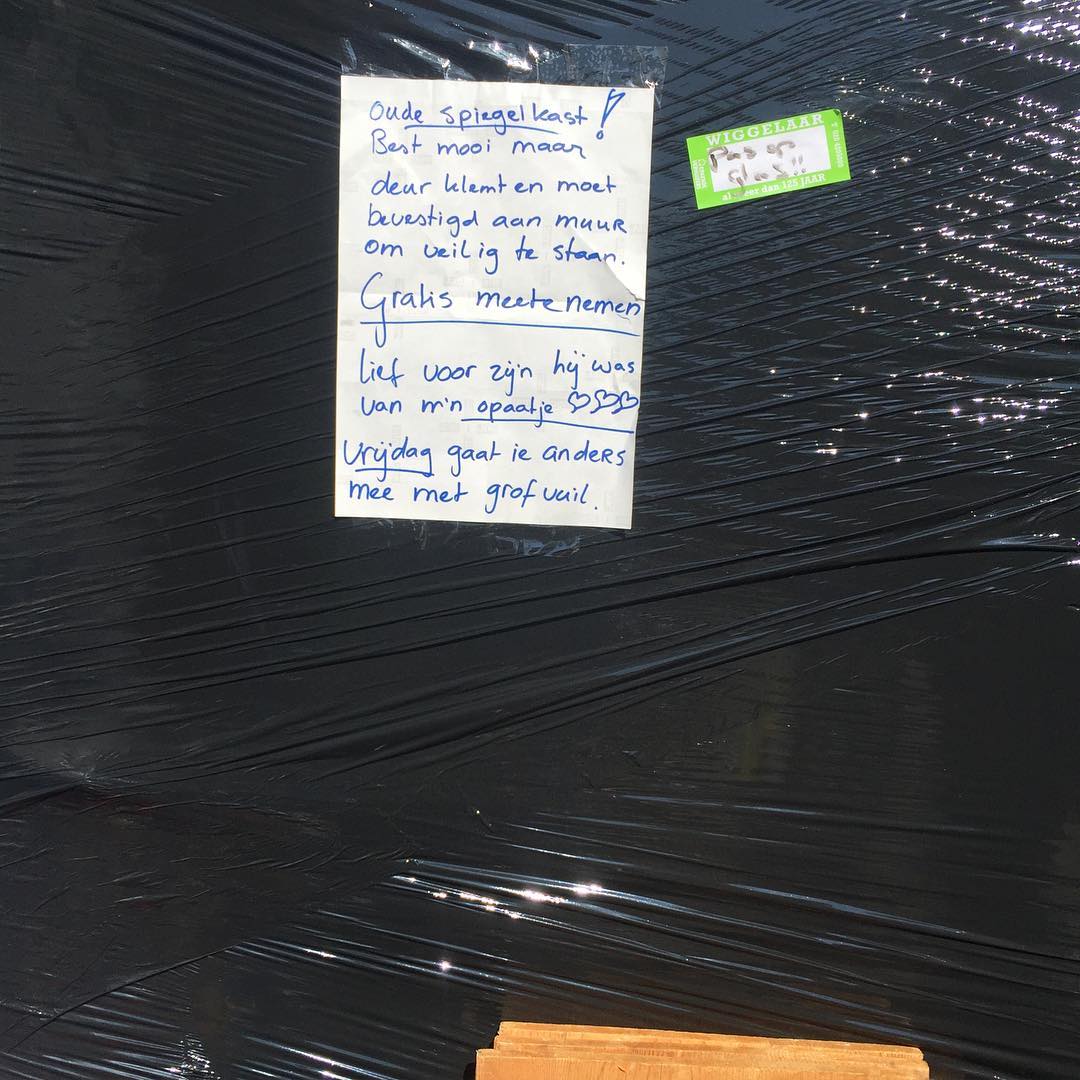 Oude spiegelkast!
Best mooi maar
deur klemt en moet
bevestigd aan muur
om veilig te staan.
Gratis meetenemen
lief voor zijn hij was
van m'n opaatje ♡♡♡
vrijdag gaat ie anders
mee met grof vuil.
WIGGELAAR
Pas op
glas!!
al meer dan 125 JAAR